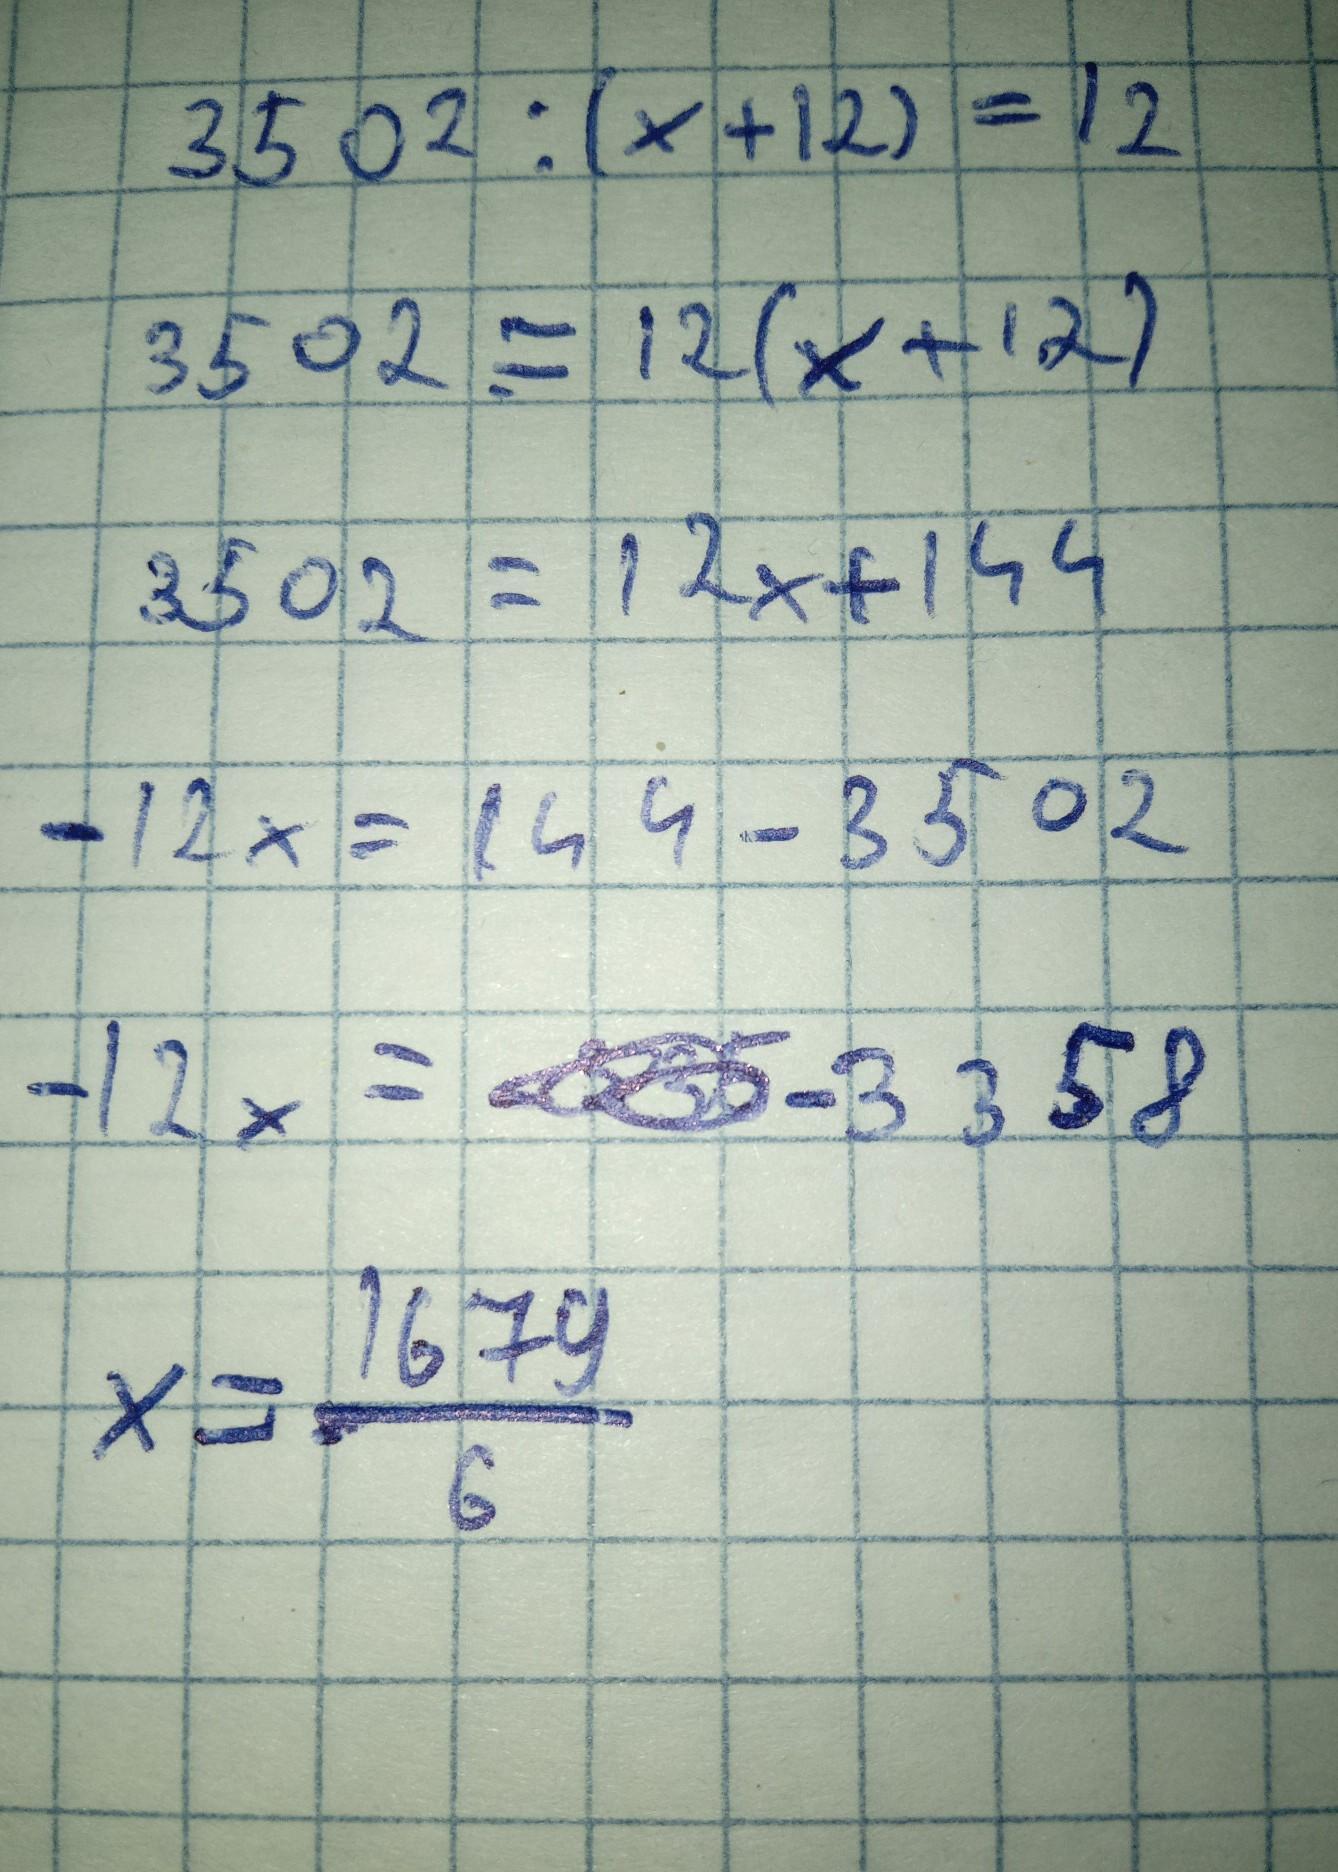 3502:(x+12)=12
3502=12(x+12)
3502=12x+144
-12x=144-3502
-12x=-3358
x=1679/6